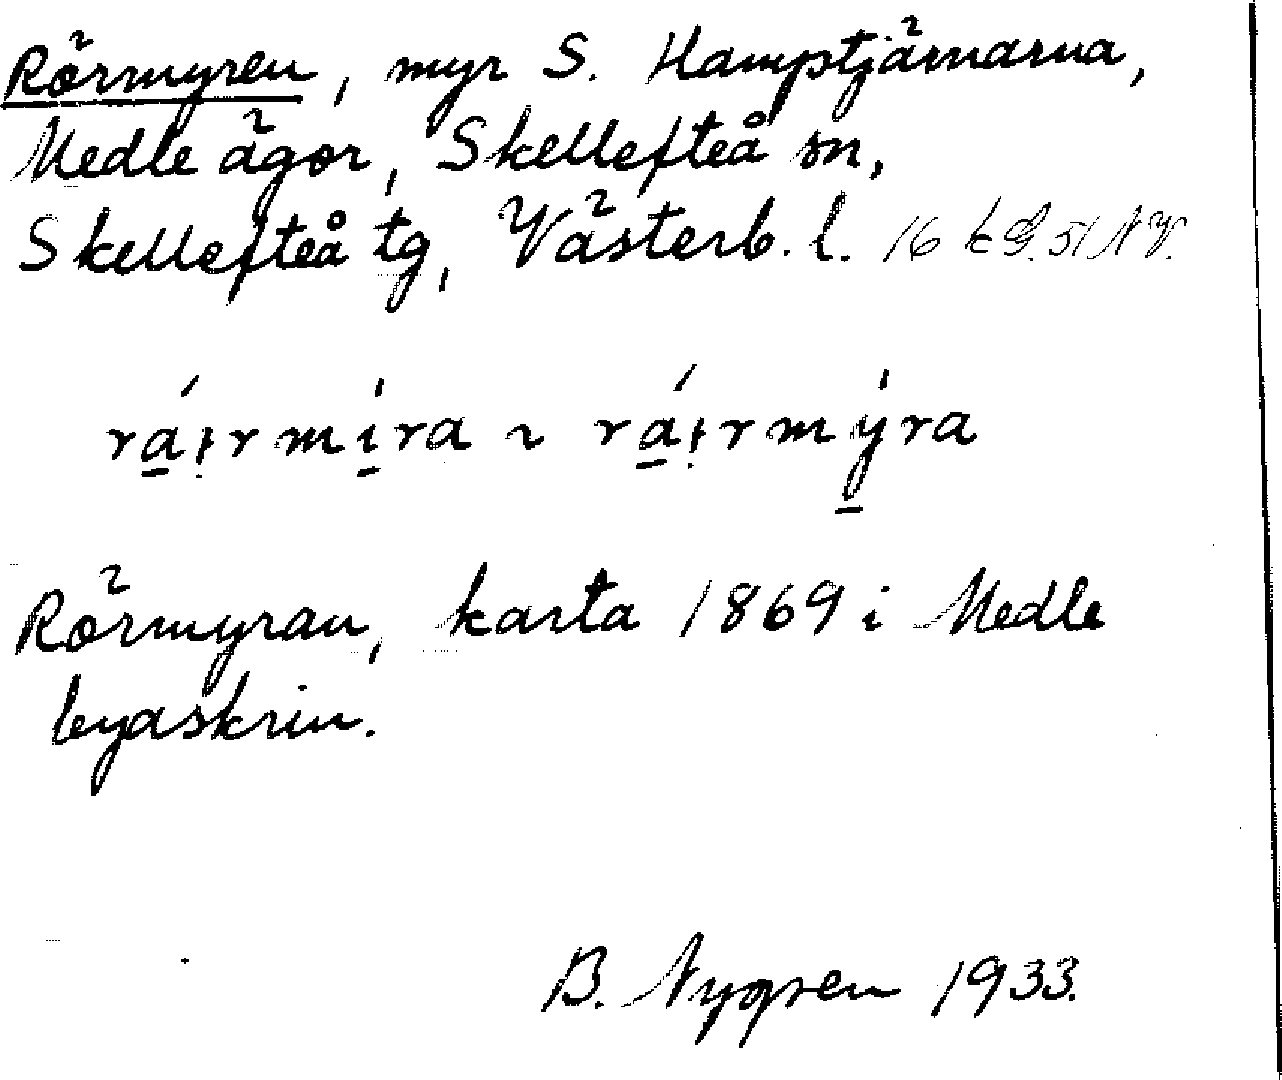 Rörmyren, myr S. Hamptjärnarna,
Medle ägor, Skellefteå sn,
Skellefteå tg, Västerb. l. 16 k G. 51 NV.
rá̠ɟrmí̠ra ~ rá̠ɟrmý̠ra
Rörmyran, karta 1869 i Medle
byaskrin.
B. Nygren 1933.